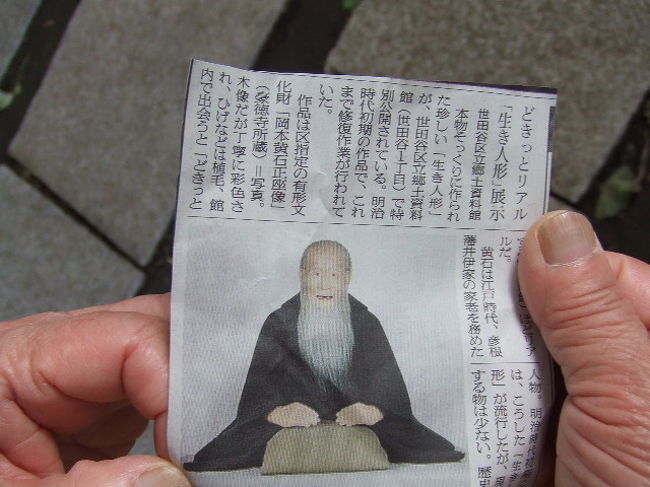 どきっとリアル
「生き人形」展示
世田谷区立郷土資料館
本物そっくりに作られ
た珍しい「生き人形」
が、世田谷区立郷土資料
館（世田谷1丁目）で特
別公開されている。明治
時代初期の作品で、これ
まで修復作業が行われて
いた。
作品は区指定の有形文
化財「岡本黄石正座像」
（豪徳寺所蔵）＝写真。
木像だが丁寧に彩色さ
れ、ひげなどは植毛、館
内で出会うと「どきっと
ほどリア
ルだ。
黄石は江戸時代、彦根
藩井伊家の家老を務めた
人物。明治時代初
は、こうした「生き
形」が流行したが、現
する物は少ない。歴史